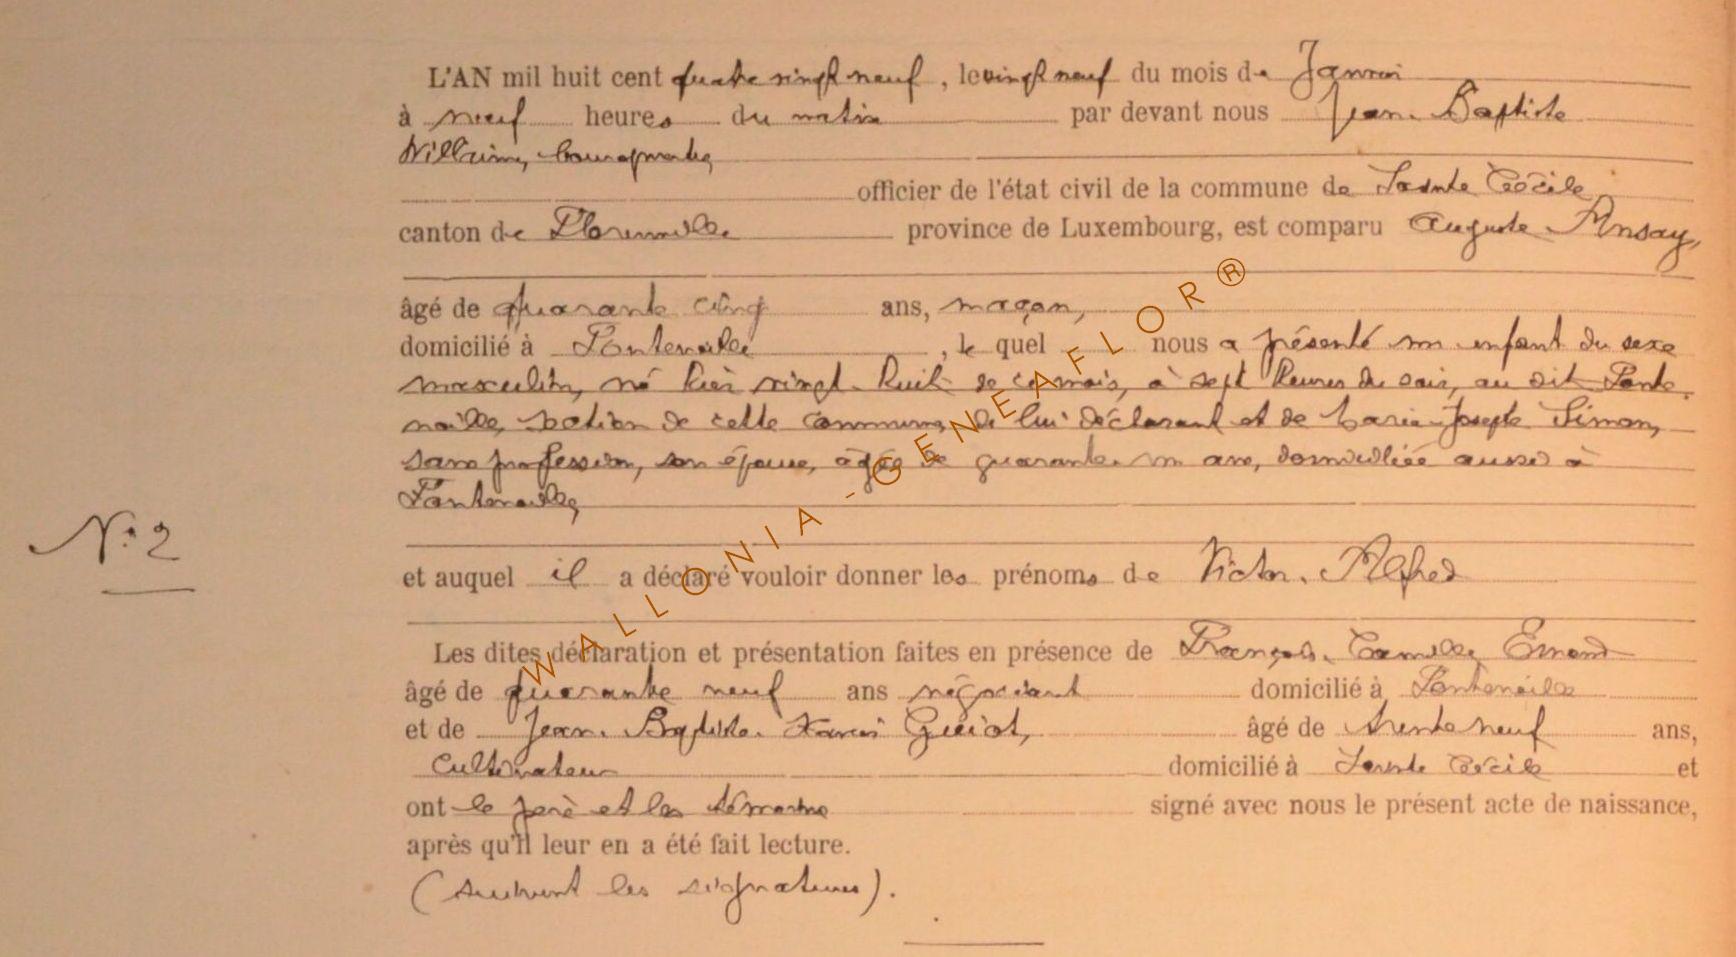 L'AN mil huit cent quatre vingt neuf, le vingt neuf du mois de Janvier
à neuf heures du matin par devant nous Jean Baptiste
Willaime, bourgmestre,
officier de l'état civil de la commune de Sainte Cécile
canton de Florenville province de Luxembourg, est comparu Auguste Ansay,
âgé de quarante cinq ans, maçon,
domicilié à Fontenoille, le quel nous a présenté un enfant du sexe
masculin, né hier vingt huit de ce mois, à sept heures du soir, au dit Fonte
noille, section de cette commune, de lui déclarant et de Marie Joseph Simon,
sans profession, son épouse, âgée de quarante un ans, domiciliée aussi à
Fontenoille,
N° 2
et auquel il a déclaré vouloir donner les prénoms de Victor Alfred
Les dites déclaration et présentation faites en présence de François Camille Emond
âgé de quarante neuf ans négociant domicilié à Fontenoille
et de Jean Baptiste Xavier Guiot, âgé de trente neuf ans,
cultivateur domicilié à Sainte Cécile et
ont le père et les témoins signé avec nous le présent acte de naissance,
après qu'il leur en a été fait lecture.
(Suivent les signatures).
WALLONIA-GENEAFLOR®